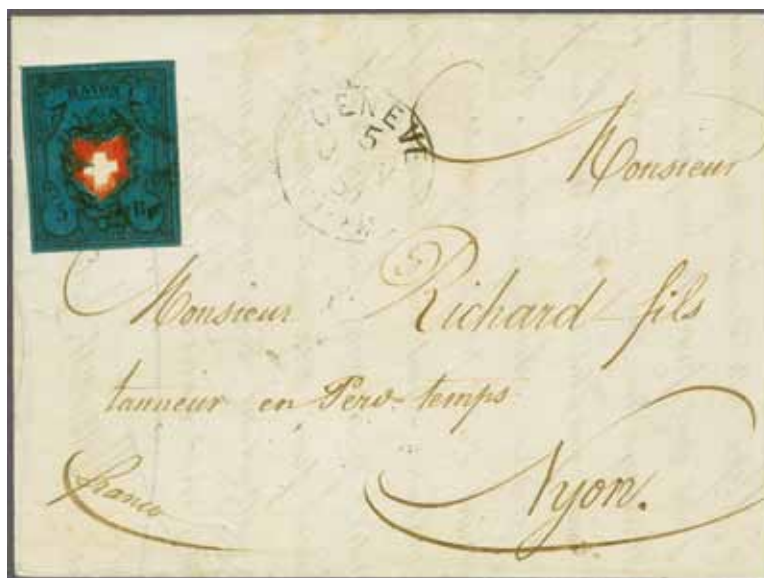 RAYON
5 Rp
GENEVE
5
Monsieur
Monsieur Richard fils
tanneur en Perd-temps
franco
Nyon.